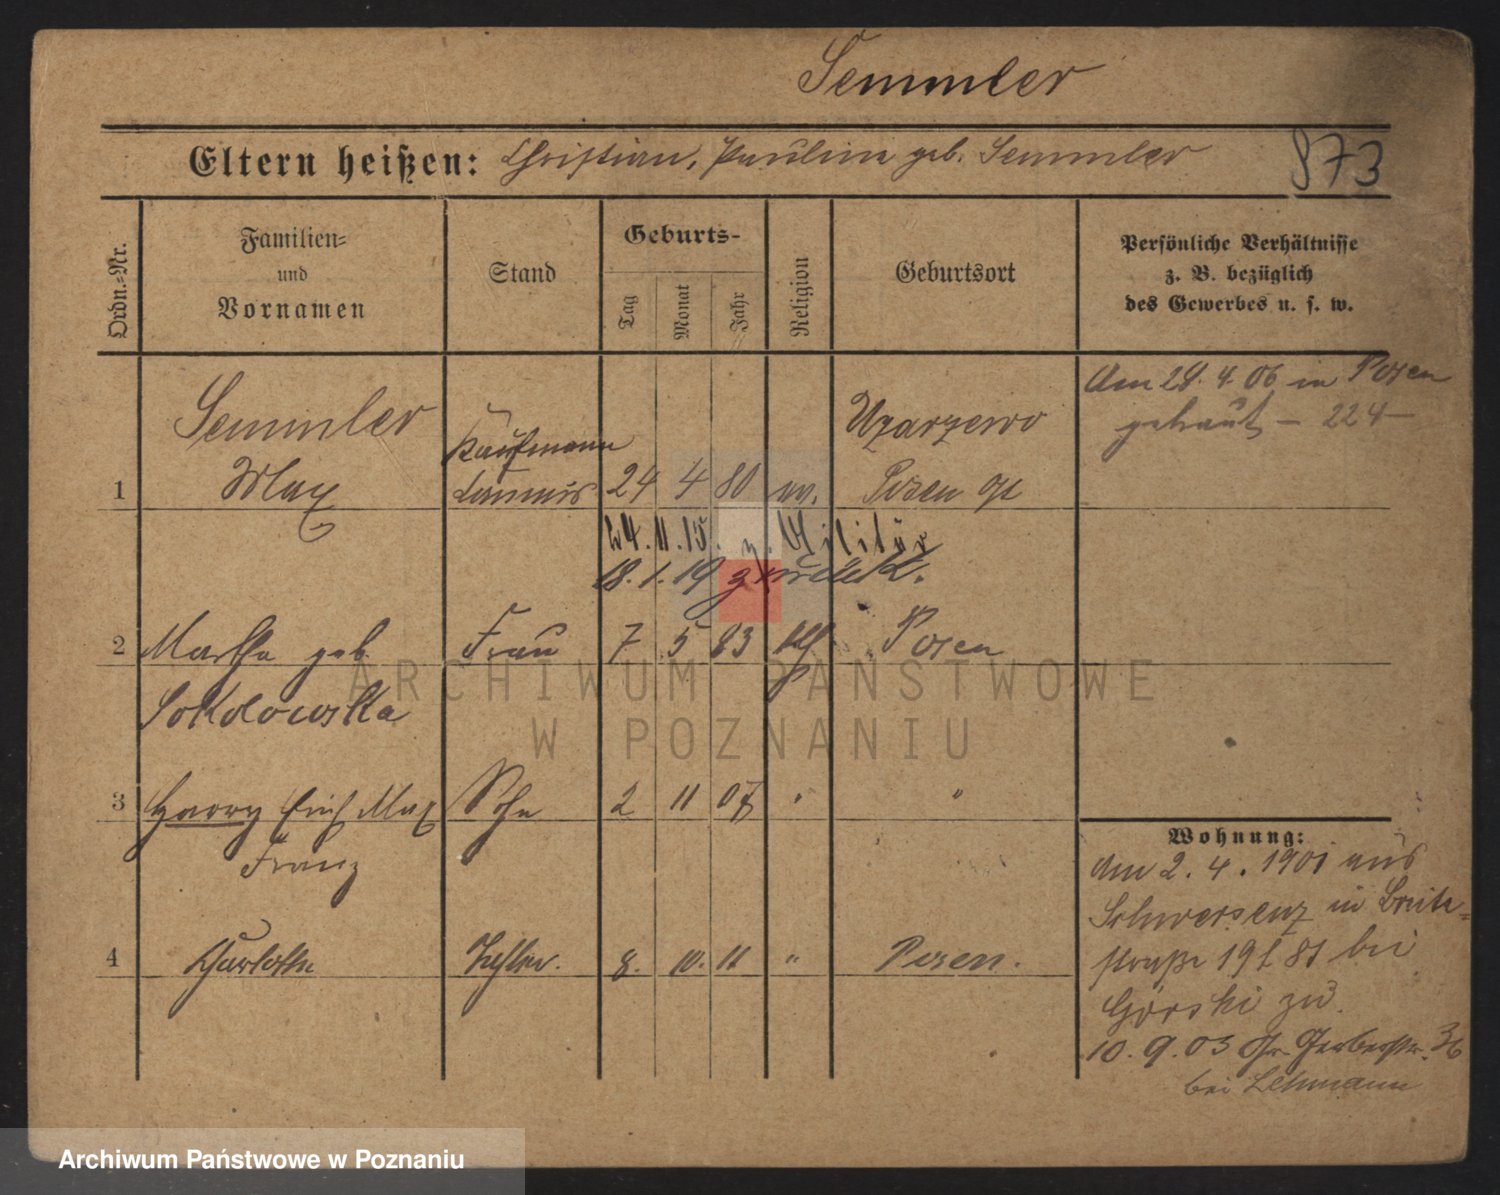 Semmler
Eltern heißen: Christian, Paulina geb. Semmler
873
Ordn.-Nr.
Familien-
und
Vornamen
Stand
Geburts-
Tag
Monat
Jahr
Religion
Geburtsort
Persönliche Verhältnisse
z. B. bezüglich
des Gewerbes u. s. w.
Am 28. 4. 06 in Posen
getraut – 224 –
Semmler
Kaufmann
Uzarzewo
1 Max 24 4 80 ev. Posen O/
24. 11. 15. z. Militär
18. 1. 19 zurück.
2 Martha geb. Frau 7 5 83 kth Posen
Sokolowska
3 Harry Erich Max Sohn 2 11 07 " "
Franz
4 Charlotte Tochter. 8. 10. 11 " Posen.
Wohnung:
Am 2. 4. 1901 aus
Schwersenz in Breite-
straße 19 bei
Górski zu.
10. 9. 03 Gr. Gerberstr. 36
bei Lehmann
ARCHIWUM PAŃSTWOWE
W POZNANIU
Archiwum Państwowe w Poznaniu